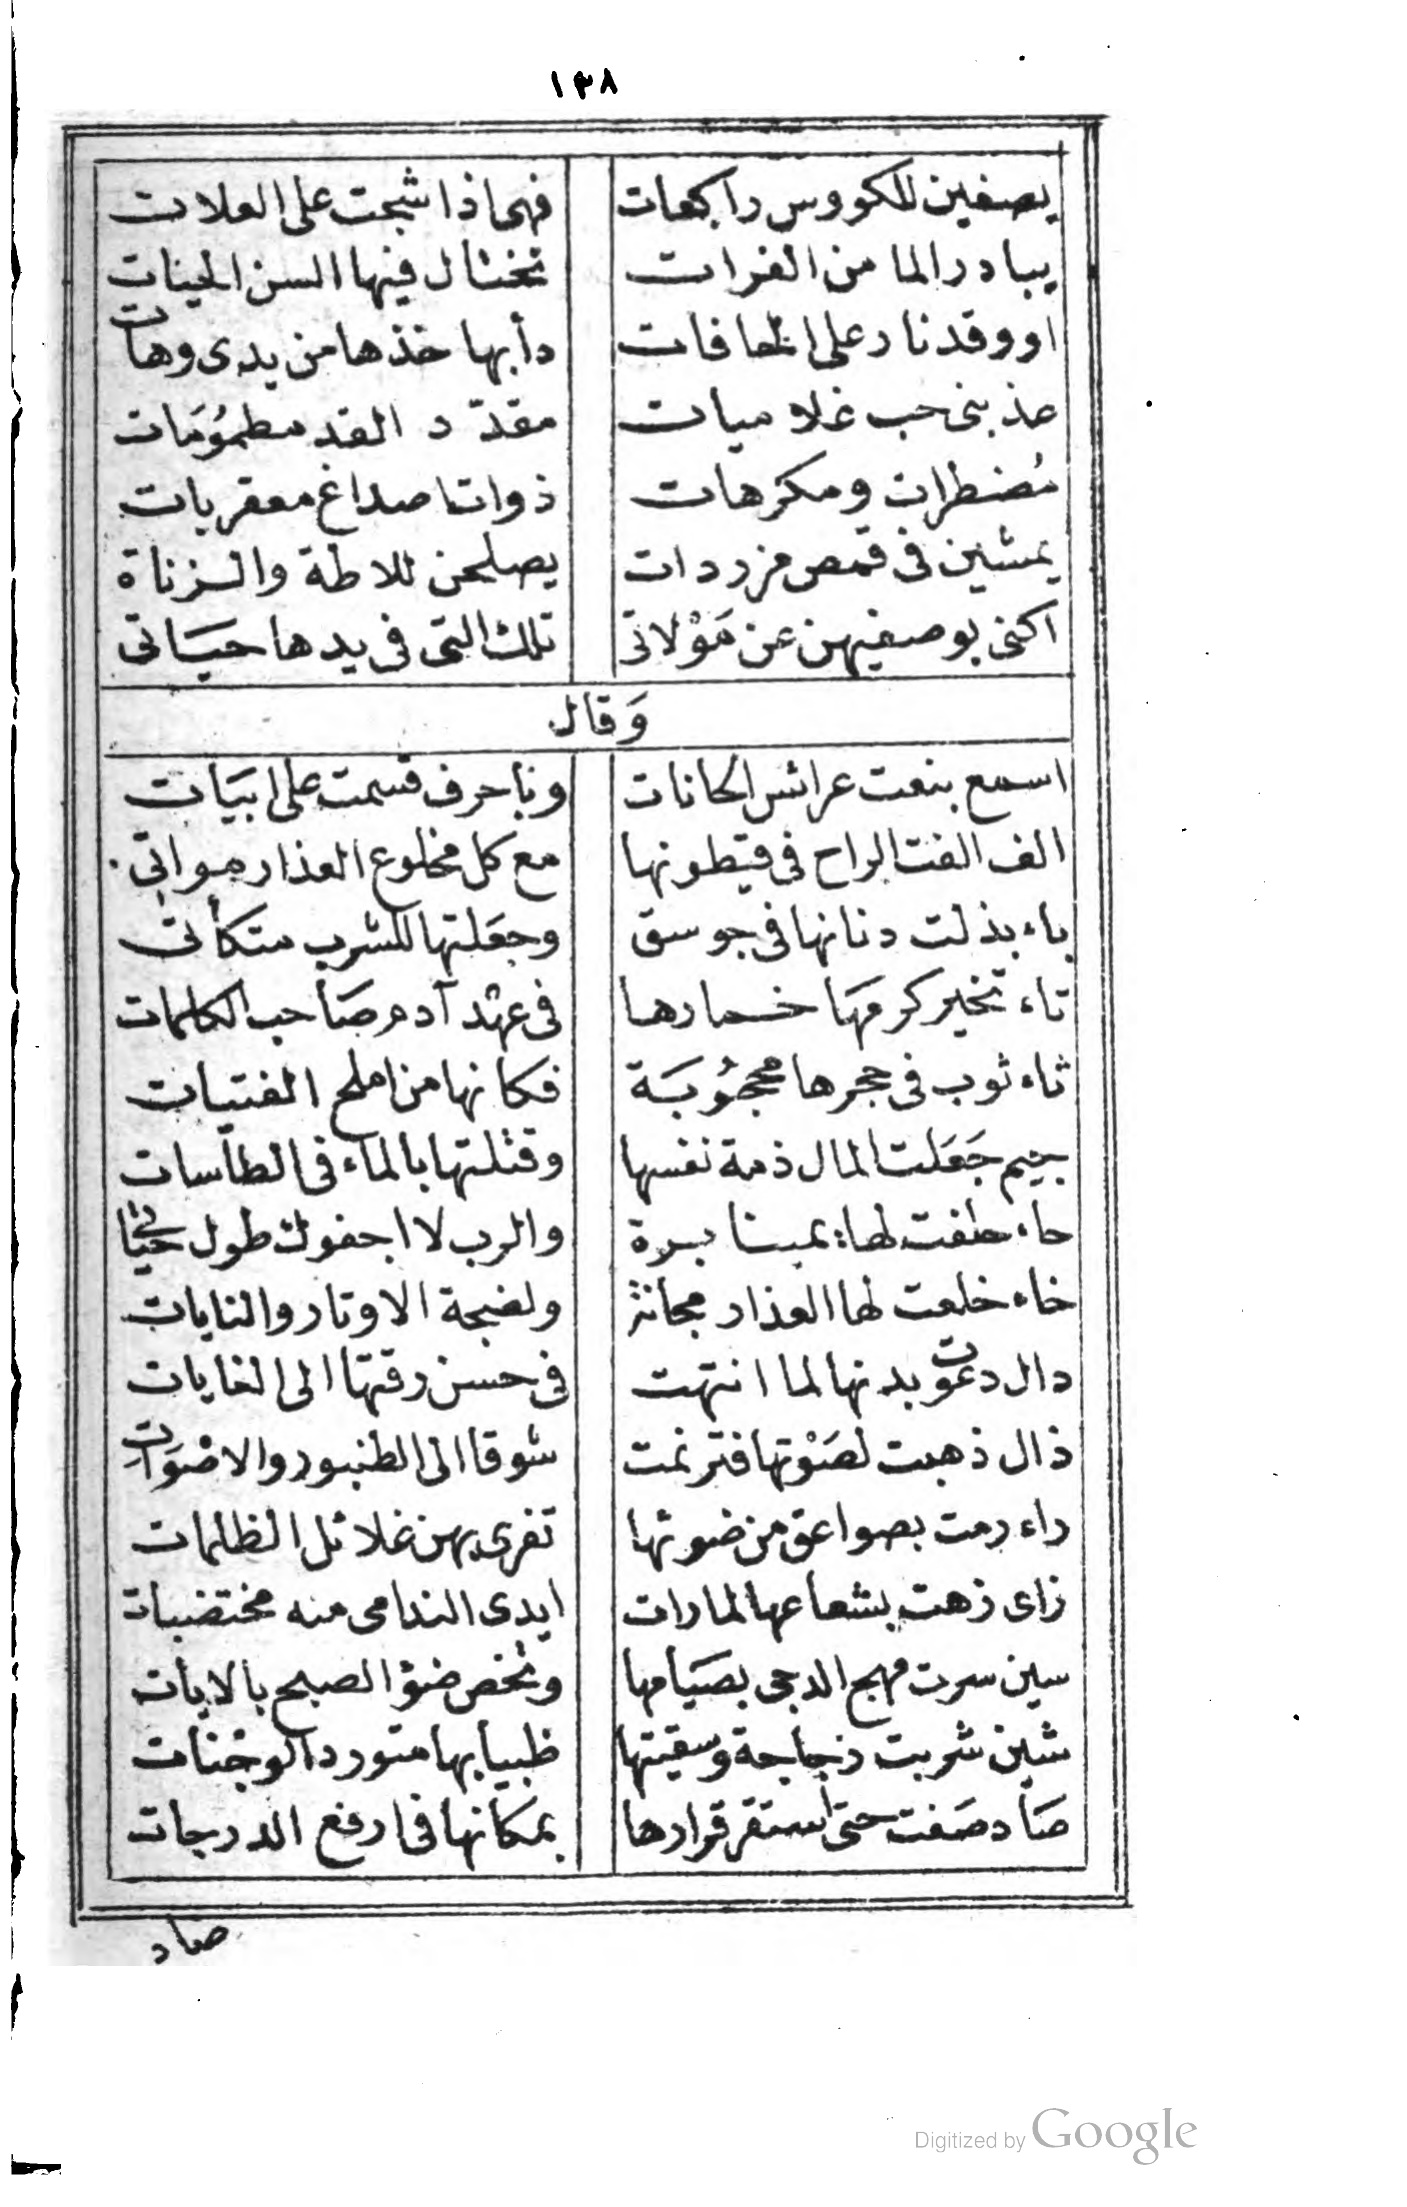 ١٣٨
يصغين للكووس راكعات فهى اذا شجت على العلات
يبادر الما من الفرات تختال فيها السن الحيات
او وقد نار على الحافات دأبها خذها من يدى وهات
عذبنى حب غلاميات مقدّد القد مطمُومَات
مُضطرات ومكرهات ذوات اصداغ معقربات
يمشين فى قمص مزردات يصلحن للاطة والزناة
اكنى بوصفيهن عن مَوْلاتى تلك التى فى يدها حيَاتى
وَقال
اسمع بنعت عرائس الحانات وناحرف قسمت على ابيَات
الف الفت الراح فى قيطونها مع كل مخلوع العذار مواتى
باء بذلت دنانها فى جوسق وجعَلتها للشرب متكأتى
تاء تخير كرمهَا خمارها فى عهْد آدم صَاحب الكلمات
ثاء ثوب فى حجرها محجُوبَة فكانها من املح الفتيات
جيم جَعَلت المال ذمة نفسها وقتلتها بالماء فى الطاسات
حاء حلفت لها يمينا برة والرب لا اجفوك طول حيَاتى
خاء خلعت لها العذار مجانة ولضجة الاوتار والنايات
دال دعوت بدنها لما انتهت فى حسن رقتها الى الغايات
ذال ذهبت لصَوْتها فترنمت شوقا الى الطنبور والاصْوَات
راء رمت بصواعق من ضوئها تفرى بهن غلائل الظلمات
زاى زهت بشعاعها لما رات ايدى الندامى منه مختضبات
سين سرت مهج الدجى بصيَامها وتخص ضؤ الصبح بالايات
شين شربت زجاجة وسقيتها ظبيا بها متورد الوجنات
صَاد صَفت حتى استقر قرارها بمكانها فى ارفع الدرجات
صاد
Digitized by Google